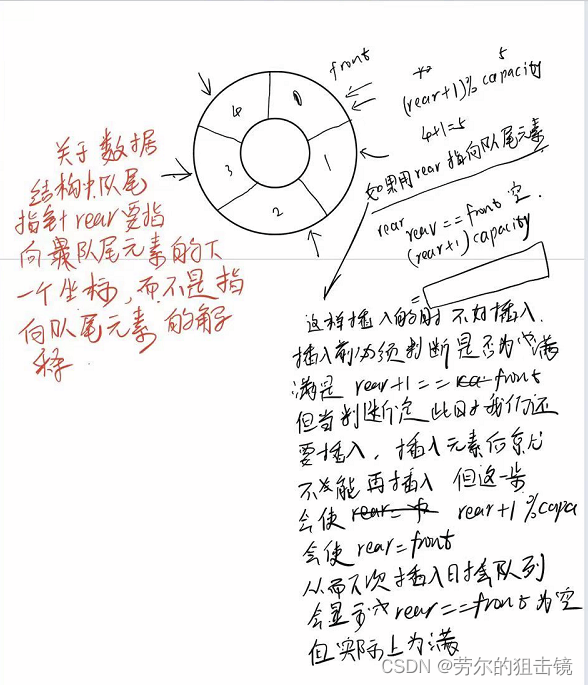 关于数据
结构中队尾
指针rear要指
向最队尾元素的下
一个坐标，而不是指
向队尾元素的解
释.
front
5
(rear+1)% capacity
4+1=5
4
0
3
1
2
如果用rear指向队尾元素
rear
rear == front 空.
(rear+1) capacity
=
这样插入的时 不好插入.
插入前必须判断是否为满
满是 rear+1 == front
但当判断完 此时我们还
要插入，插入元素后
不能再插入 但这一步
会使 rear+1 %capa
会使 rear=front
从而下次插入时会队列
会显示成rear==front为空
但实际上为满
CSDN @劳尔的狙击镜